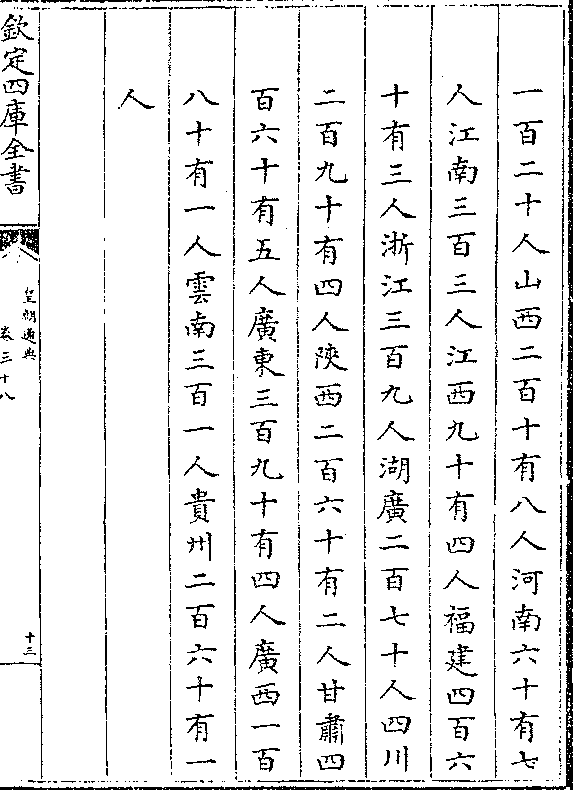 一百二十人山西二百十有八人河南六十有七
人江南三百三人江西九十有四人福建四百六
十有三人浙江三百九人湖廣二百七十人四川
二百九十有四人陝西二百六十有二人甘肅四
百六十有五人廣東三百九十有四人廣西一百
八十有一人雲南三百一人貴州二百六十有一
人
欽定四庫全書
皇朝通典
卷三十八
十三